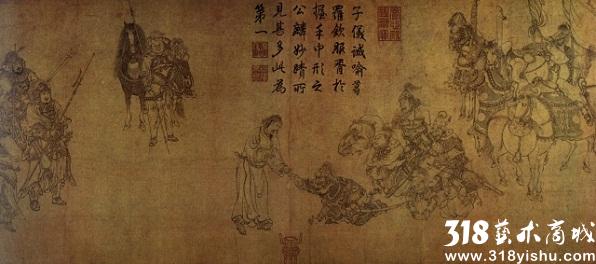 子儀誠喻葛
羅欽服胥於
握手中形之
公麟妙蹟所
見甚多此為
第一
318藝术商城
www.318yishu.com